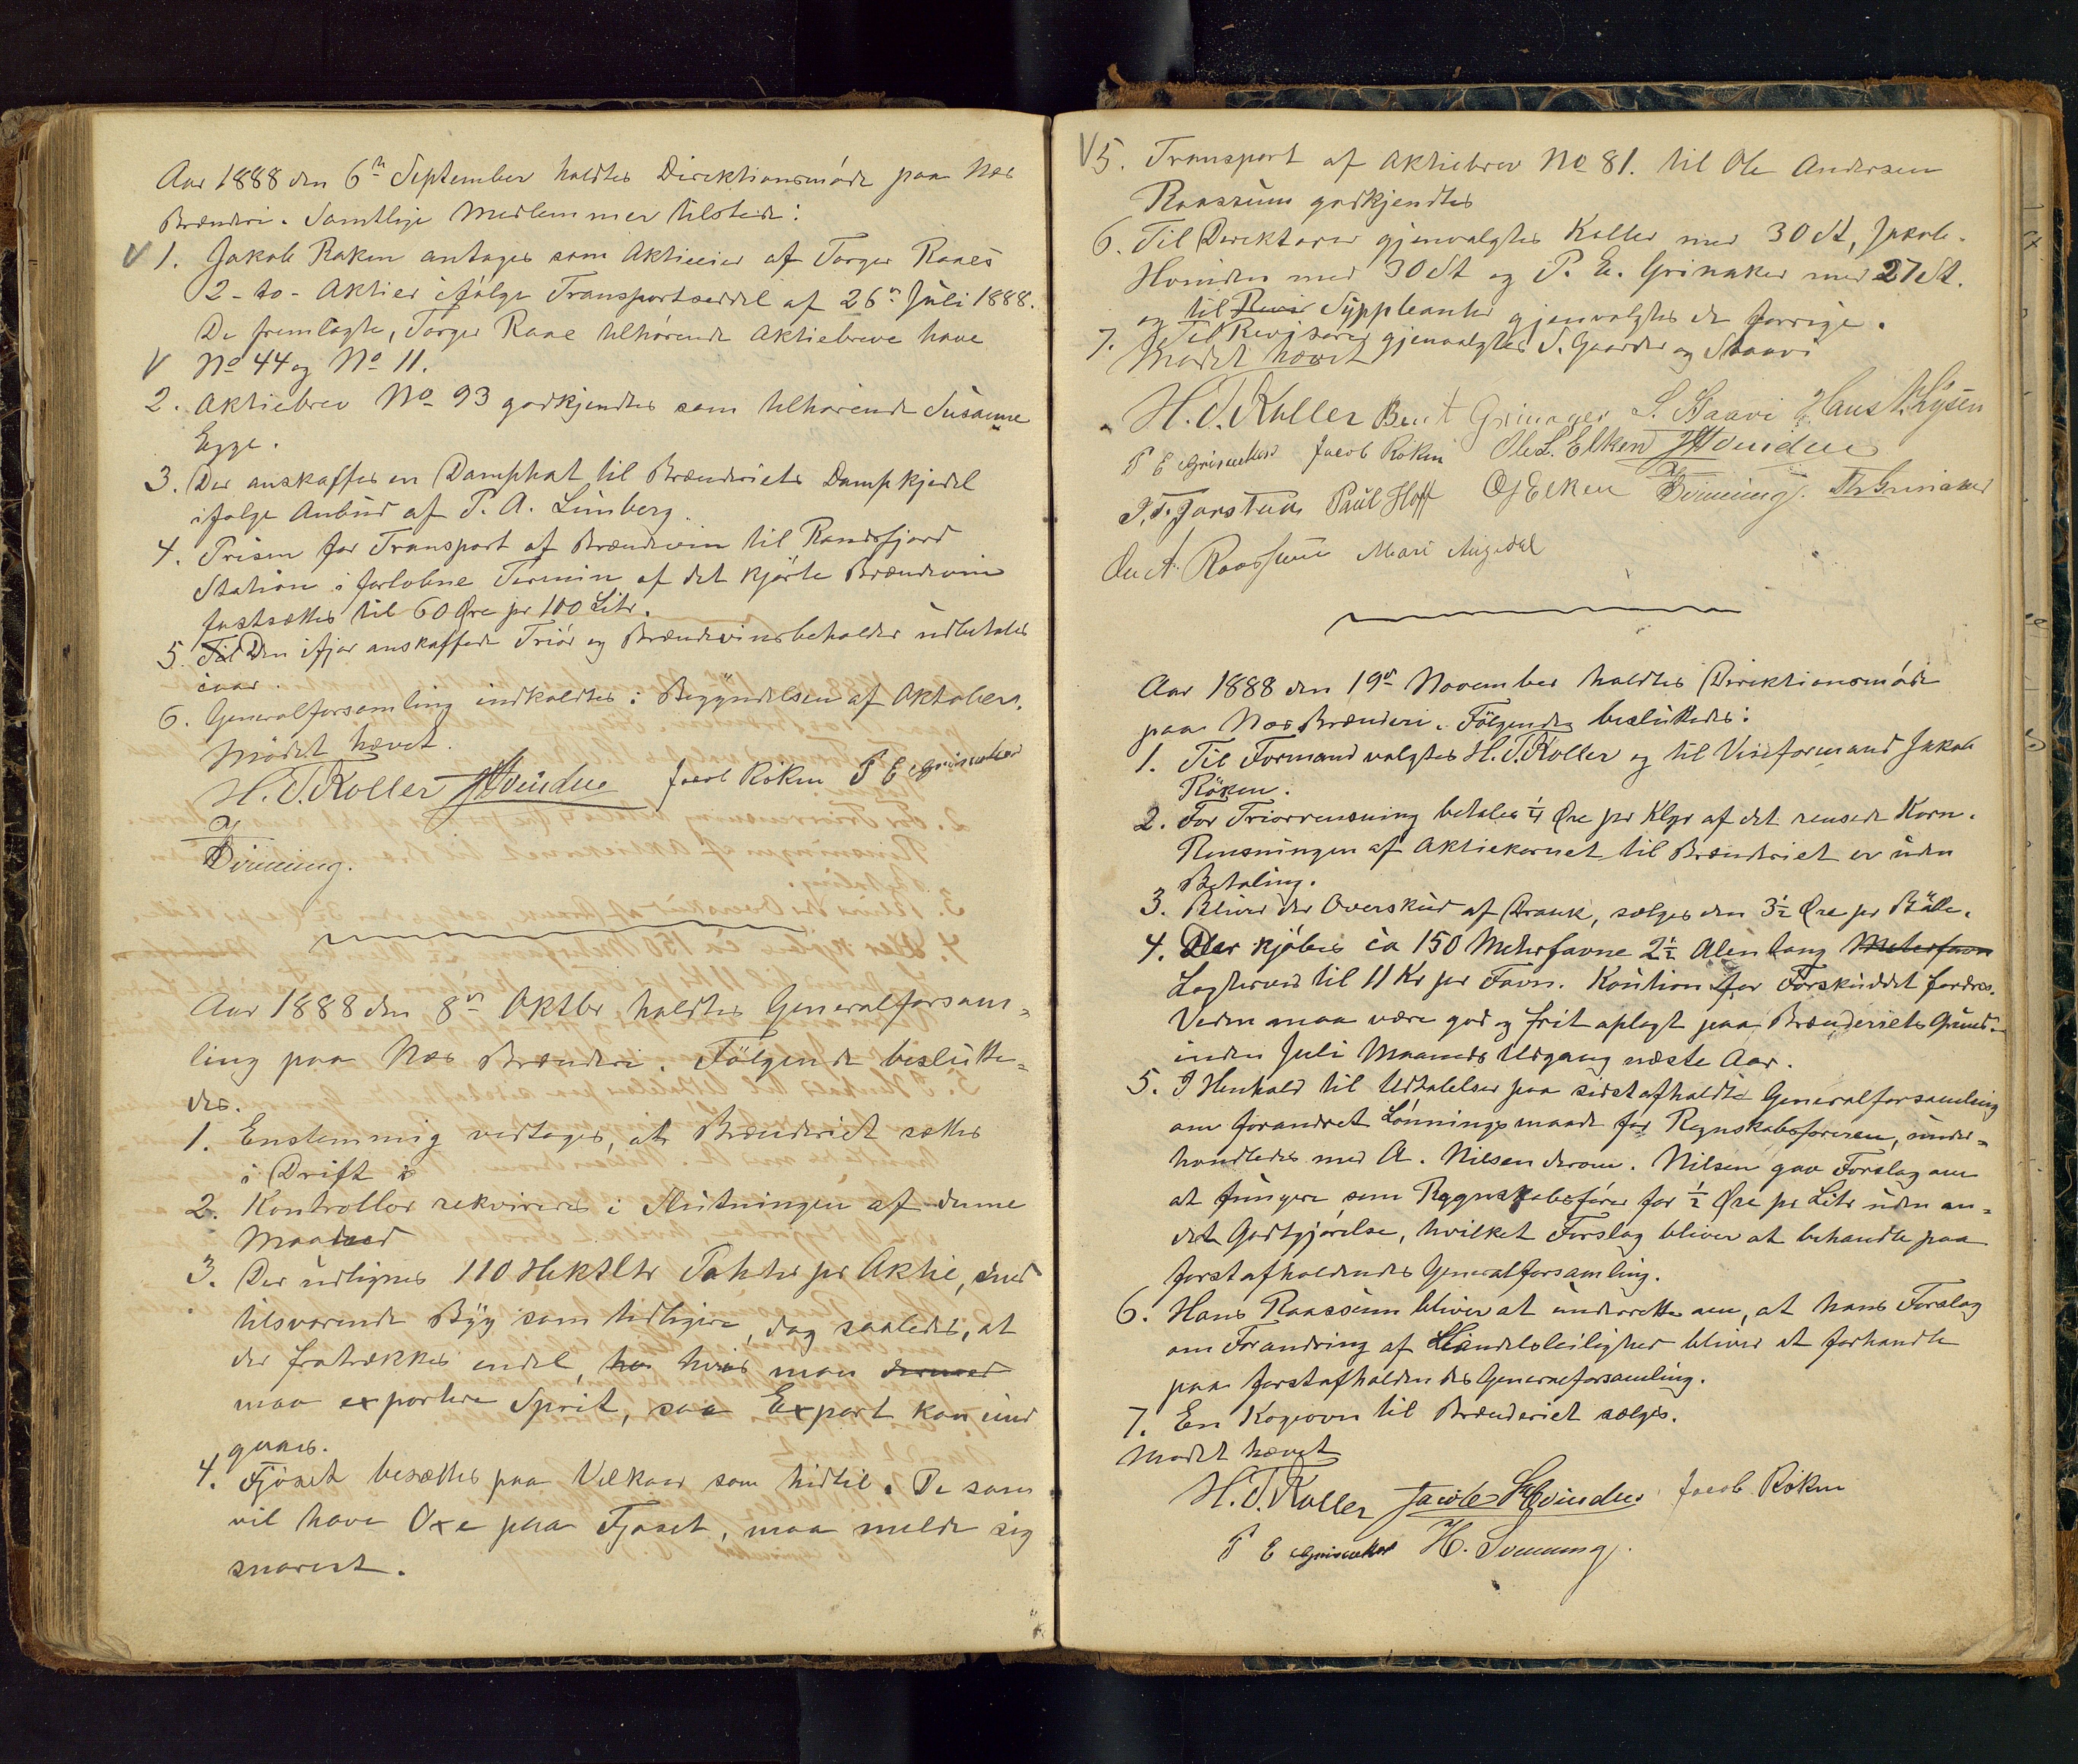 Aar 1888 den 6te September holdtes Direktionsmöde paa Næs
Brænderi. Samtlige Medlemmer tilstede:
V 1. Jakob Röken antages som Aktieeier af Torger Raaes
2 - to - Aktier ifölge Transportseddel af 26de Juli 1888.
De fremlagte, Torger Raae tilhørende Aktiebreve have
V No 44 og No 11.
2. Aktiebrev No 93 godkjendtes som tilhørende Susanne
Egge.
3. Der anskaffes en Damphat til Brænderiets Dampkjedel
ifølge Anbud af P. A. Limberg.
4. Prisen for Transport af Brændevin til Randsfjord
Station i forløbne Termin af det kjørte Brændevin
fastsættes til 60 Øre pr 100 Litr.
5. Til Den ifjor anskaffede Triör og Brændevinsbeholder udbetales
iaar.
6. Generalforsamling indkaldtes i Begyndelsen af Oktober.
Mödet hævet.
H. T. Koller JHvinden Jacob Röken P E Grinaker
H Svinning.
Aar 1888 den 8de Oktbr holdtes Generalforsam=
ling paa Næs Brænderi. Følgende beslutte=
des.
1. Enstemmig vedtoges, at Brænderiet sættes
i Drift
2. Kontrollör rekvireres i Slutningen af denne
Maaned
3. Der udlignes 110 Hektltr Poteter pr Aktie, med
tilsvarende Byg som tidligere, dog saaledes, at
der fratrækkes endel, hvis man dermed
maa exportere Sprit, saa Export kan und
gaaes.
4. Fjöset besættes paa Vilkaar som hidtil. De som
vil have Oxe paa Fjøset, maa melde sig
snarest.
V 5. Transport af Aktiebrev No 81. til Ole Andersen
Raassum godkjendtes
6. Til Direktører gjenvalgtes Koller med 30 St, Jakob
Hvinden med 30 St og P. E. Grinaker med 27 St.
og til Revis Suppleanter gjenvalgtes de forrige.
7. Til Revisorer gjenvalgtes S. Gaarder og Staavi
Mødet hævet
H. T. Koller Bent Grinager S. Staavi Hans N. Lysen
P E Grinaker Jacob Röken Ole L. Elken JHvinden
P. T. Jorstad Paul Hoff O J Elken H Svinning. Th Grinaker
Ole A. Raassum Mari Augedal
Aar 1888 den 19de November holdtes Direktionsmöde
paa Næs Brænderi. Fölgende besluttedes:
1. Til Formand valgtes H. T. Koller og til Viseformand Jakob
Röken.
2. For Triorrensning betales ¼ Øre pr Klgr af det rensede Korn.
Rensningen af Aktiekornet til Brænderiet er uden
Betaling.
3. Bliver der Overskud af Drank, sælges den 3½ Øre pr Bötte.
4. Der kjöbes ca 150 Meterfavne 2½ Alen lang Meterfavn
Lagterved til 11 Kr pr Favn. Kaution for Forskuddet fordres.
Veden maa være god og frit oplagt paa Brænderiets Grund
inden Juli Maaneds Udgang næste Aar.
5. I Henhold til Udtalelser paa sidst afholdte Generalforsamling
om forandret Lønningsmaade for Regnskabsføreren, under=
handledes med A. Nilsen derom. Nilsen gav Forslag om
at fungere som Regnskabsfører for ½ Øre pr Litr uden an=
den Godtgjørelse, hvilket Forslag bliver at behandle paa
førstafholdendes Generalforsamling.
6. Hans Raassum bliver at underrette om, at hans Forslag
om Forandring af Handelsleilighed bliver at forhandle
paa førstafholdendes Generalforsamling.
7. En Kogeovn til Brænderiet sælges.
Mødet hævet
H. T. Koller Jacob Hvinden Jacob Röken
P E Grinaker H. Svinning.